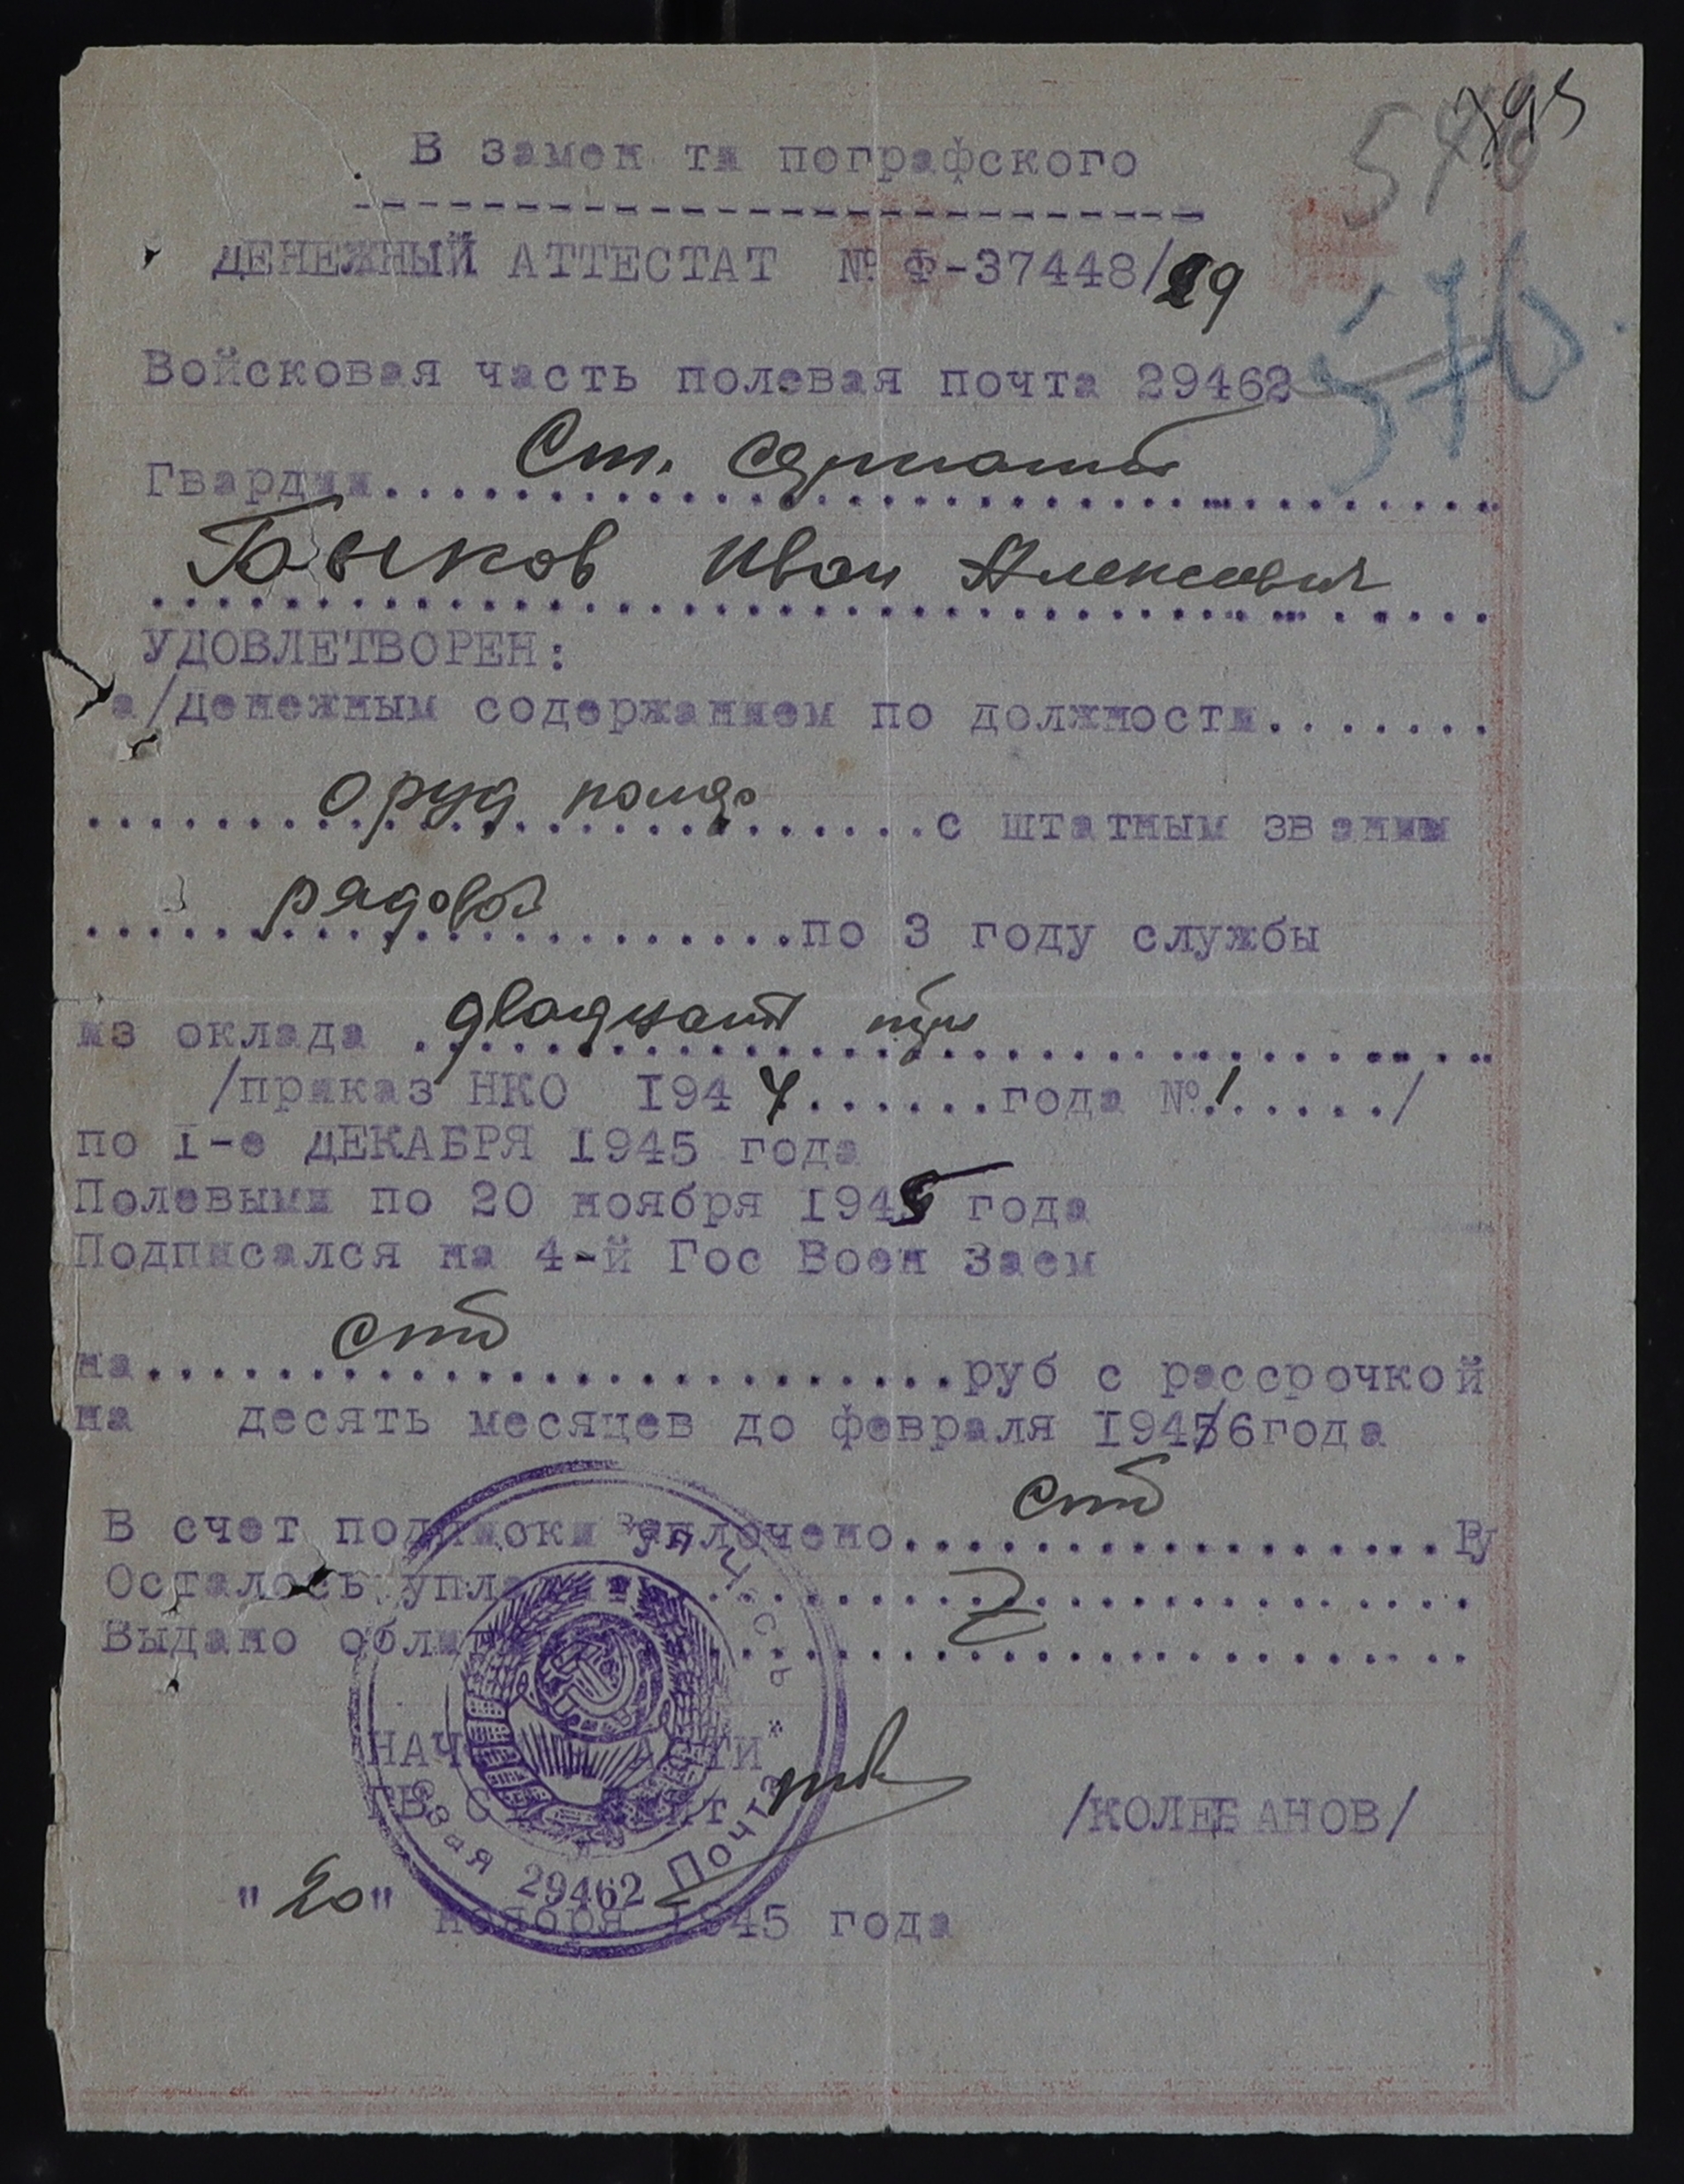 795
576
В замен та пографского
ДЕНЕЖНЫЙ АТТЕСТАТ № Ф-37448/29
576
Войсковая часть полевая почта 29462
Гвардии Ст. сержант
Быков Иван Алексеевич
УДОВЛЕТВОРЕН:
а/денежным содержанием по должности
оруд с штатным звании
рядовой по 3 году службы
из оклада двадцать
/приказ НКО 1944 года № 1 /
по I-е ДЕКАБРЯ 1945 года
Полевыми по 20 ноября 1945 года
Подписался на 4-й Гос Воен Заем
на сто руб с рассрочкой
на десять месяцев до февраля 1945/6года
В счет подписки уплочено сто Ру
Осталось
Выдано
/КОЛЕБАНОВ/
29462 Почта
"20" ноября 1945 года